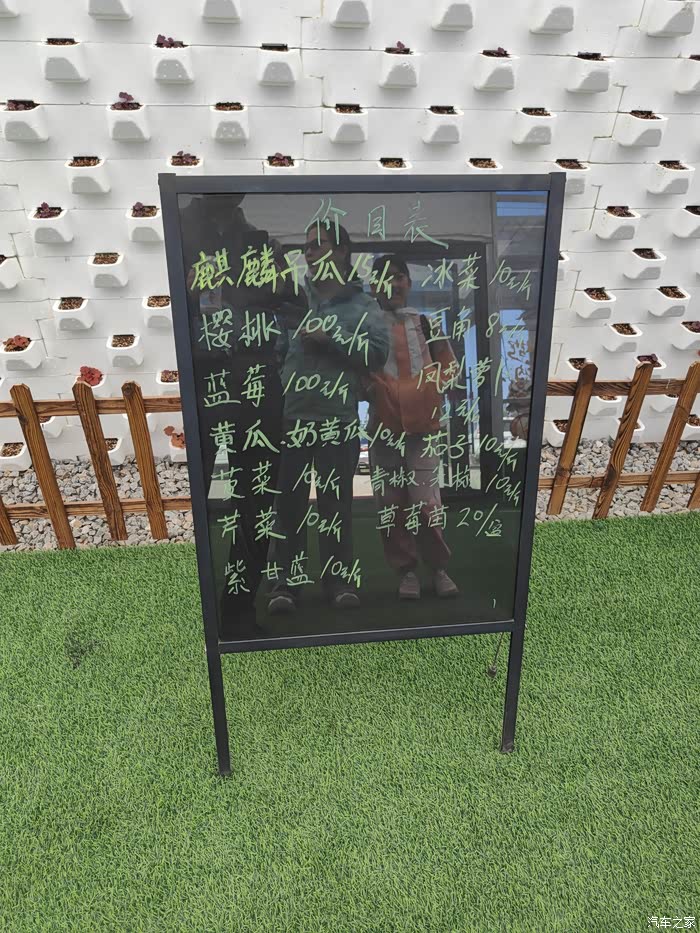 价目表
麒麟吊瓜15元/斤 冰菜 10元/斤
樱桃 100元/斤 豆角 8元/斤
蓝莓 100元/斤 凤梨
12元/斤
黄瓜.奶黄瓜10元/斤 茄子10元/斤
菠菜 10元/斤 青椒. 10元/斤
芹菜 10元/斤 草莓苗20/盆
紫甘蓝10元/斤
汽车之家